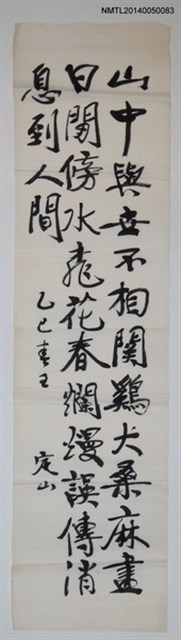 NMTL20140050083
山中與世不相関鷄犬桑麻盡
日閒傍水飛花春爛熳誤傳消
息到人間
乙巳春王
定山